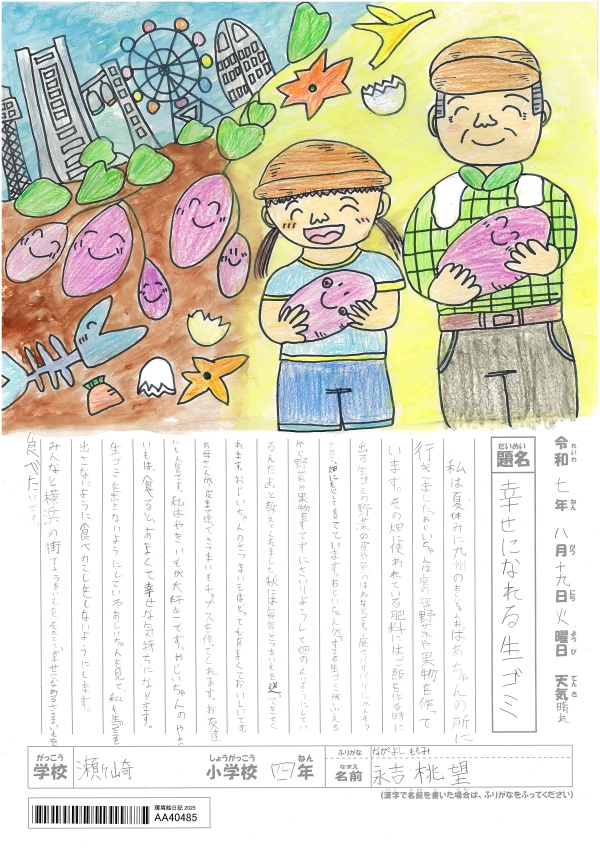 令和七年八月十九日火曜日 天気晴れ
れいわ ねん がつ にち ようび てんき
だいめい
題名 幸せになれる生ゴミ
私は夏休みに九州のおじいちゃんおばあちゃんの所に
行きました。おじいちゃんは庭の畑で野菜や果物を作って
います。その畑に使われている肥料にはご飯を作る時に
出る生ゴミの野菜の皮や魚のほねなどを、庭でバリバリにかんそう
させ、畑にもどして育てています。おじいちゃんが
から野菜や果物を育てずにさいりようして畑のえいようにしてい
るんだよ。と教えてくれました。秋には毎年さつまいもを送ってきてく
れます。おじいちゃんのさつまいもはとってもあまくておいしいです。
お母さんが皮まで使ってさつまいもチップスを作ってくれます。お友達
にも人気です。私はやきいもが大好きです。おじいちゃんのやき
いもは、食べると、あまくて幸せな気持ちになります。
生ゴミを出さないようにしているおじいちゃんを見て、私も生ゴミを
出さないように食べのこしをしないようにします。
みんなと横浜の街で
食べたいです。
がっこう
学校 瀬ケ崎 小学校 四年
しょうがっこう ねん
ふりがな ながよし ももみ
なまえ
名前 永吉桃望
(漢字で名前を書いた場合は、ふりがなをふってください)
環境絵日記 2025
AA40485